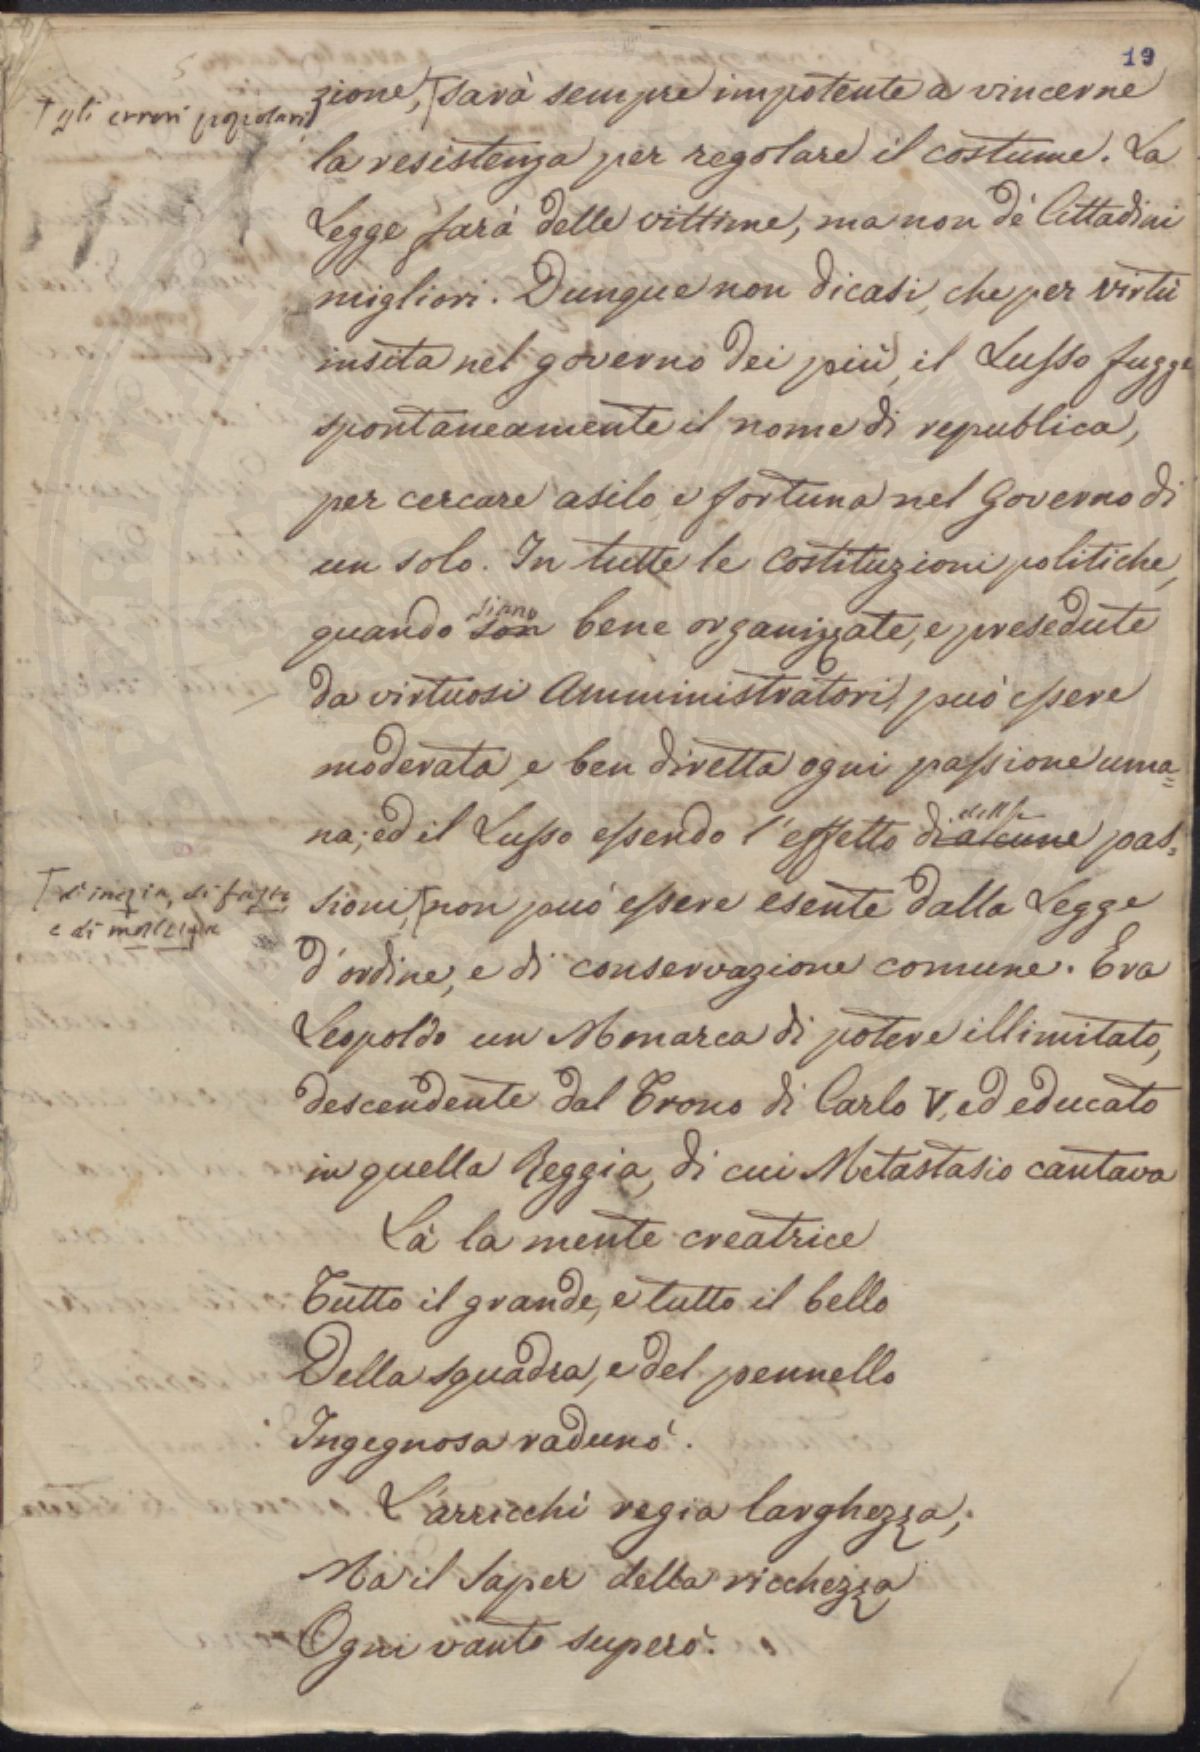 19
zione, † sarà sempre impotente a vincerne
† gli errori popolari,
la resistenza per regolare il costume. La
Legge farà delle vittime, ma non de' Cittadini
migliori. Dunque non dicasi, che per virtù
insita nel governo dei più, il Lusso fugge
spontaneamente il nome di republica,
per cercare asilo, e fortuna nel Governo di
un solo. In tutte le Costituzioni politiche,
siano
quando son bene organizzate, e presedute
da virtuosi Amministratori, può essere
moderata, e ben diretta ogni passione uma=
delle
na; ed il Lusso essendo l'effetto di alcune pas=
† d'inezia, di fasto
e di mollezza
sioni, † non può essere esente dalla Legge
d'ordine, e di conservazione comune. Era
Leopoldo un Monarca di potere illimitato,
descendente dal Trono di Carlo V, ed educato
in quella Reggia, di cui Metastasio cantava
Là la mente creatrice
Tutto il grande, e tutto il bello
Della squadra, e del pennello
Ingegnosa radunò.
L'arricchì regia larghezza;
Ma il saper della ricchezza
Ogni vanto superò.